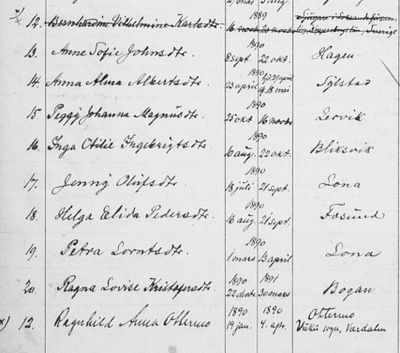 12. Bernhardine Vilhelmine Karlsdtr. 1889 Sverige
13. Anne Sofie Johnsdtr. 1890 8 sept. 22 okt. Hagen
14. Anna Alma Albertsdtr. 1890 23 april 18 mai Sylstad
15 Peggy Johanna Magnusdtr. 1890 25 okt 16 novbr Lervik
16. Inga Otilie Ingebrigtsdtr. 1890 10 aug. 22 okt. Bliksvik
17. Jenny Olufsdtr. 1890 18 juli 21 sept. Lona
18. Helga Elida Pedersdtr. 1890 16 aug 21 sept. Fosund
19. Petra Lorntsdtr. 1890 1 mars 13 april Lona
20. Ragna Lovise Kristofersdtr. 1890 1891 22 decbr 30 mars Bogan
x) 12. Ragnhild Anna Ottermo 1890 1890 19 jan. 4. apr. Ottermo
Vuku sogn, Værdalen